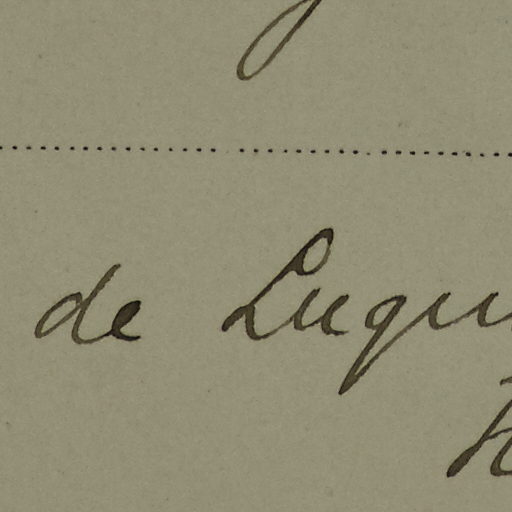 de Luqu